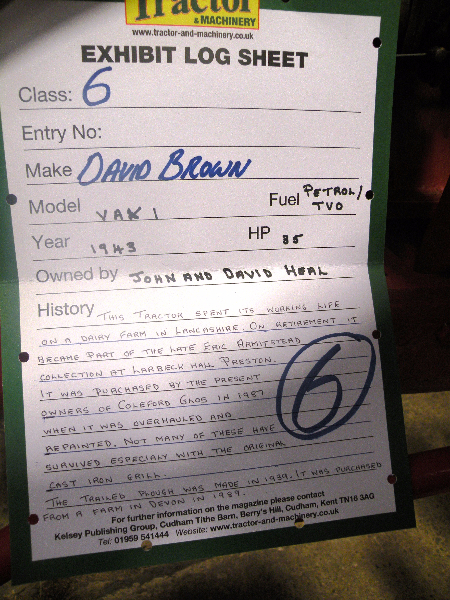 Tractor
& MACHINERY
www.tractor-and-machinery.co.uk
EXHIBIT LOG SHEET
Class: 6
Entry No:
Make DAVID BROWN
Model VAK 1 Fuel PETROL/
TVO
Year 1943 HP 35
Owned by JOHN AND DAVID HEAL
History THIS TRACTOR SPENT ITS WORKING LIFE
ON A DAIRY FARM IN LANCASHIRE. ON RETIREMENT IT
BECAME PART OF THE LATE ERIC ARMITSTEAD
COLLECTION AT LARBECK HALL PRESTON.
IT WAS PURCHASED BY THE PRESENT
OWNERS OF COLEFORD GROB IN 1987
WHEN IT WAS OVERHAULED AND
REPAINTED. NOT MANY OF THESE HAVE
SURVIVED ESPECIALY WITH THE ORIGINAL
CAST IRON GRILL.
6
THE TRAILED PLOUGH WAS MADE IN 1939. IT WAS PURCHASED
FROM A FARM IN DEVON IN 1989.
For further information on the magazine please contact
Kelsey Publishing Group, Cudham Tithe Barn, Berry's Hill, Cudham, Kent TN16 3AG
Tel: 01959 541444 Website: www.tractor-and-machinery.co.uk